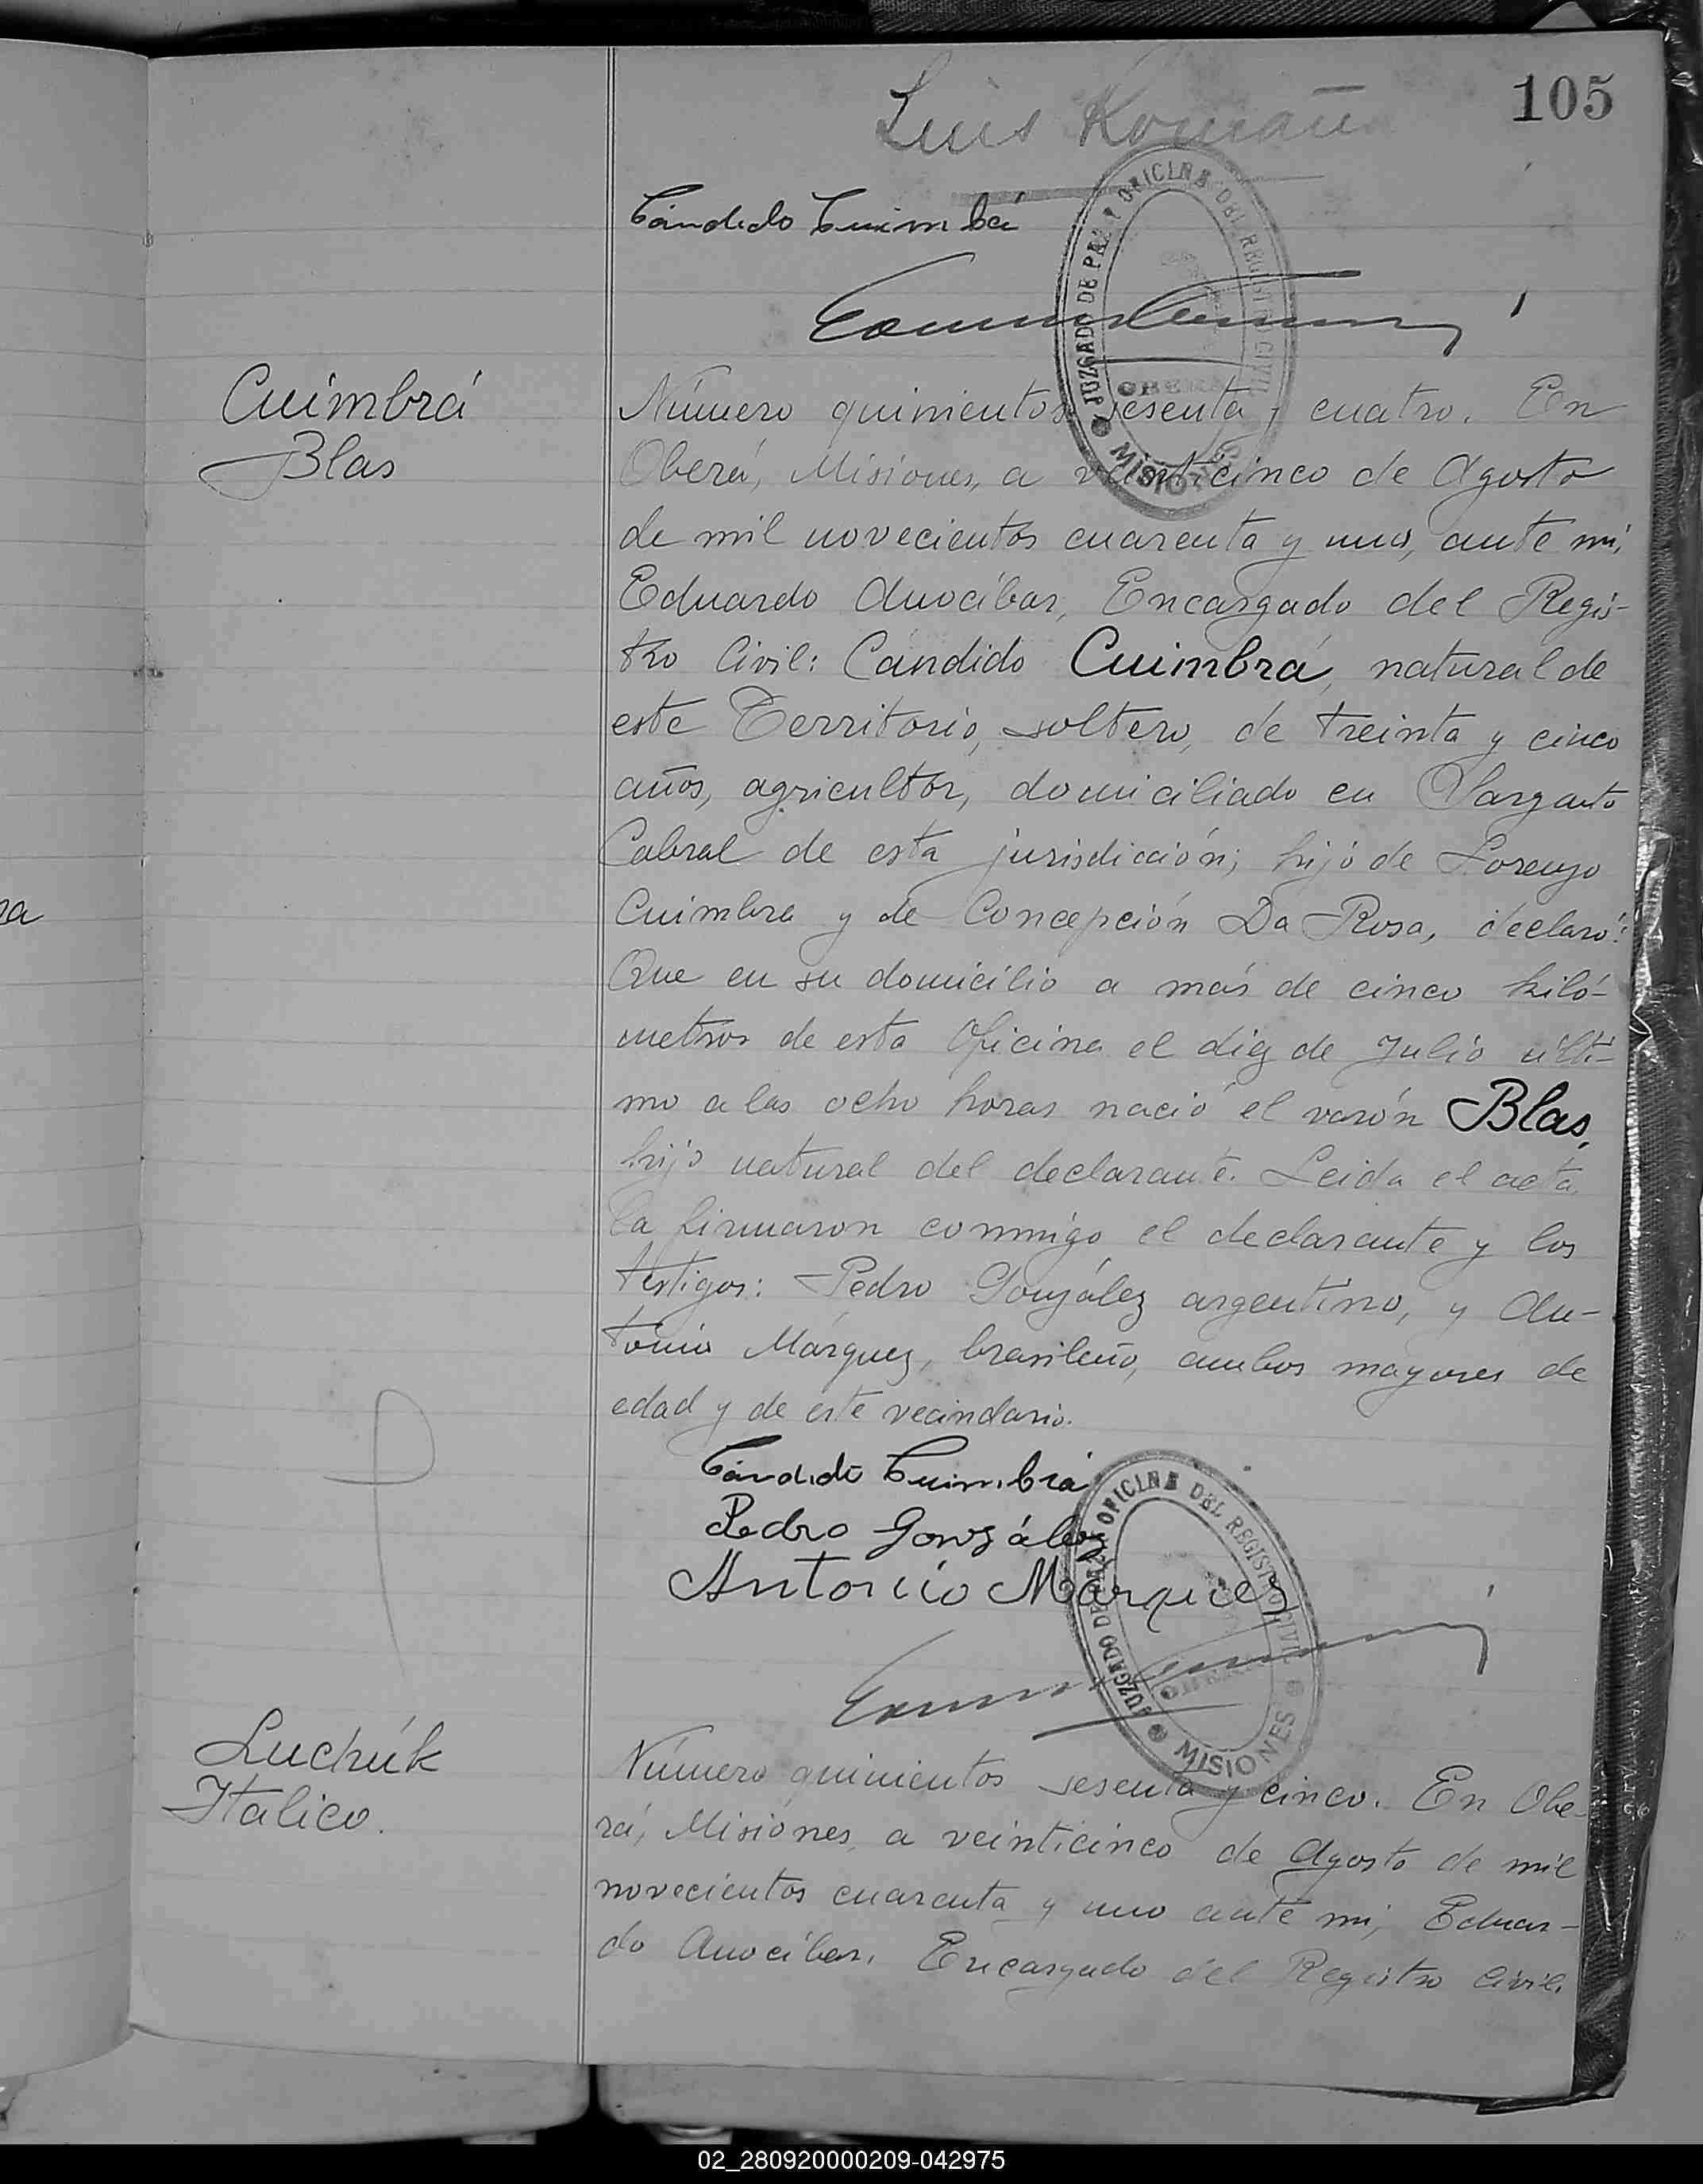 105
Luis Román
Cándido Cuimbrá
JUZGADO DE PAZ Y OFICINA DEL REGISTRO CIVIL
OBERÁ
MISIONES
Cuimbrá
Blas
Número quinientos sesenta y cuatro. En
Oberá, Misiones, a veinticinco de Agosto
de mil novecientos cuarenta y uno, ante mí,
Eduardo Anocíbar, Encargado del Regis-
tro Civil: Cándido Cuimbrá, natural de
este Territorio, soltero, de treinta y cinco
años, agricultor, domiciliado en Sargento
Cabral de esta jurisdicción; hijo de Lorenzo
Cuimbra y de Concepción Da Rosa, declaró:
Que en su domicilio a más de cinco kiló-
metros de esta Oficina el diez de Julio últi-
mo a las ocho horas nació el varón Blas,
hijo natural del declarante. Leida el acta
la firmaron conmigo el declarante y los
testigos: Pedro González argentino, y An-
tonio Márquez, brasileño, ambos mayores de
edad y de este vecindario.
Cándido Cuimbrá
Pedro González
Antonio Márquez
JUZGADO DE PAZ Y OFICINA DEL REGISTRO CIVIL
OBERÁ
MISIONES
Luchúk
Italico.
Número quinientos sesenta y cinco. En Obe-
rá, Misiones, a veinticinco de Agosto de mil
novecientos cuarenta y uno ante mí, Eduar-
do Anocíbar, Encargado del Registro Civil.
02_280920000209-042975